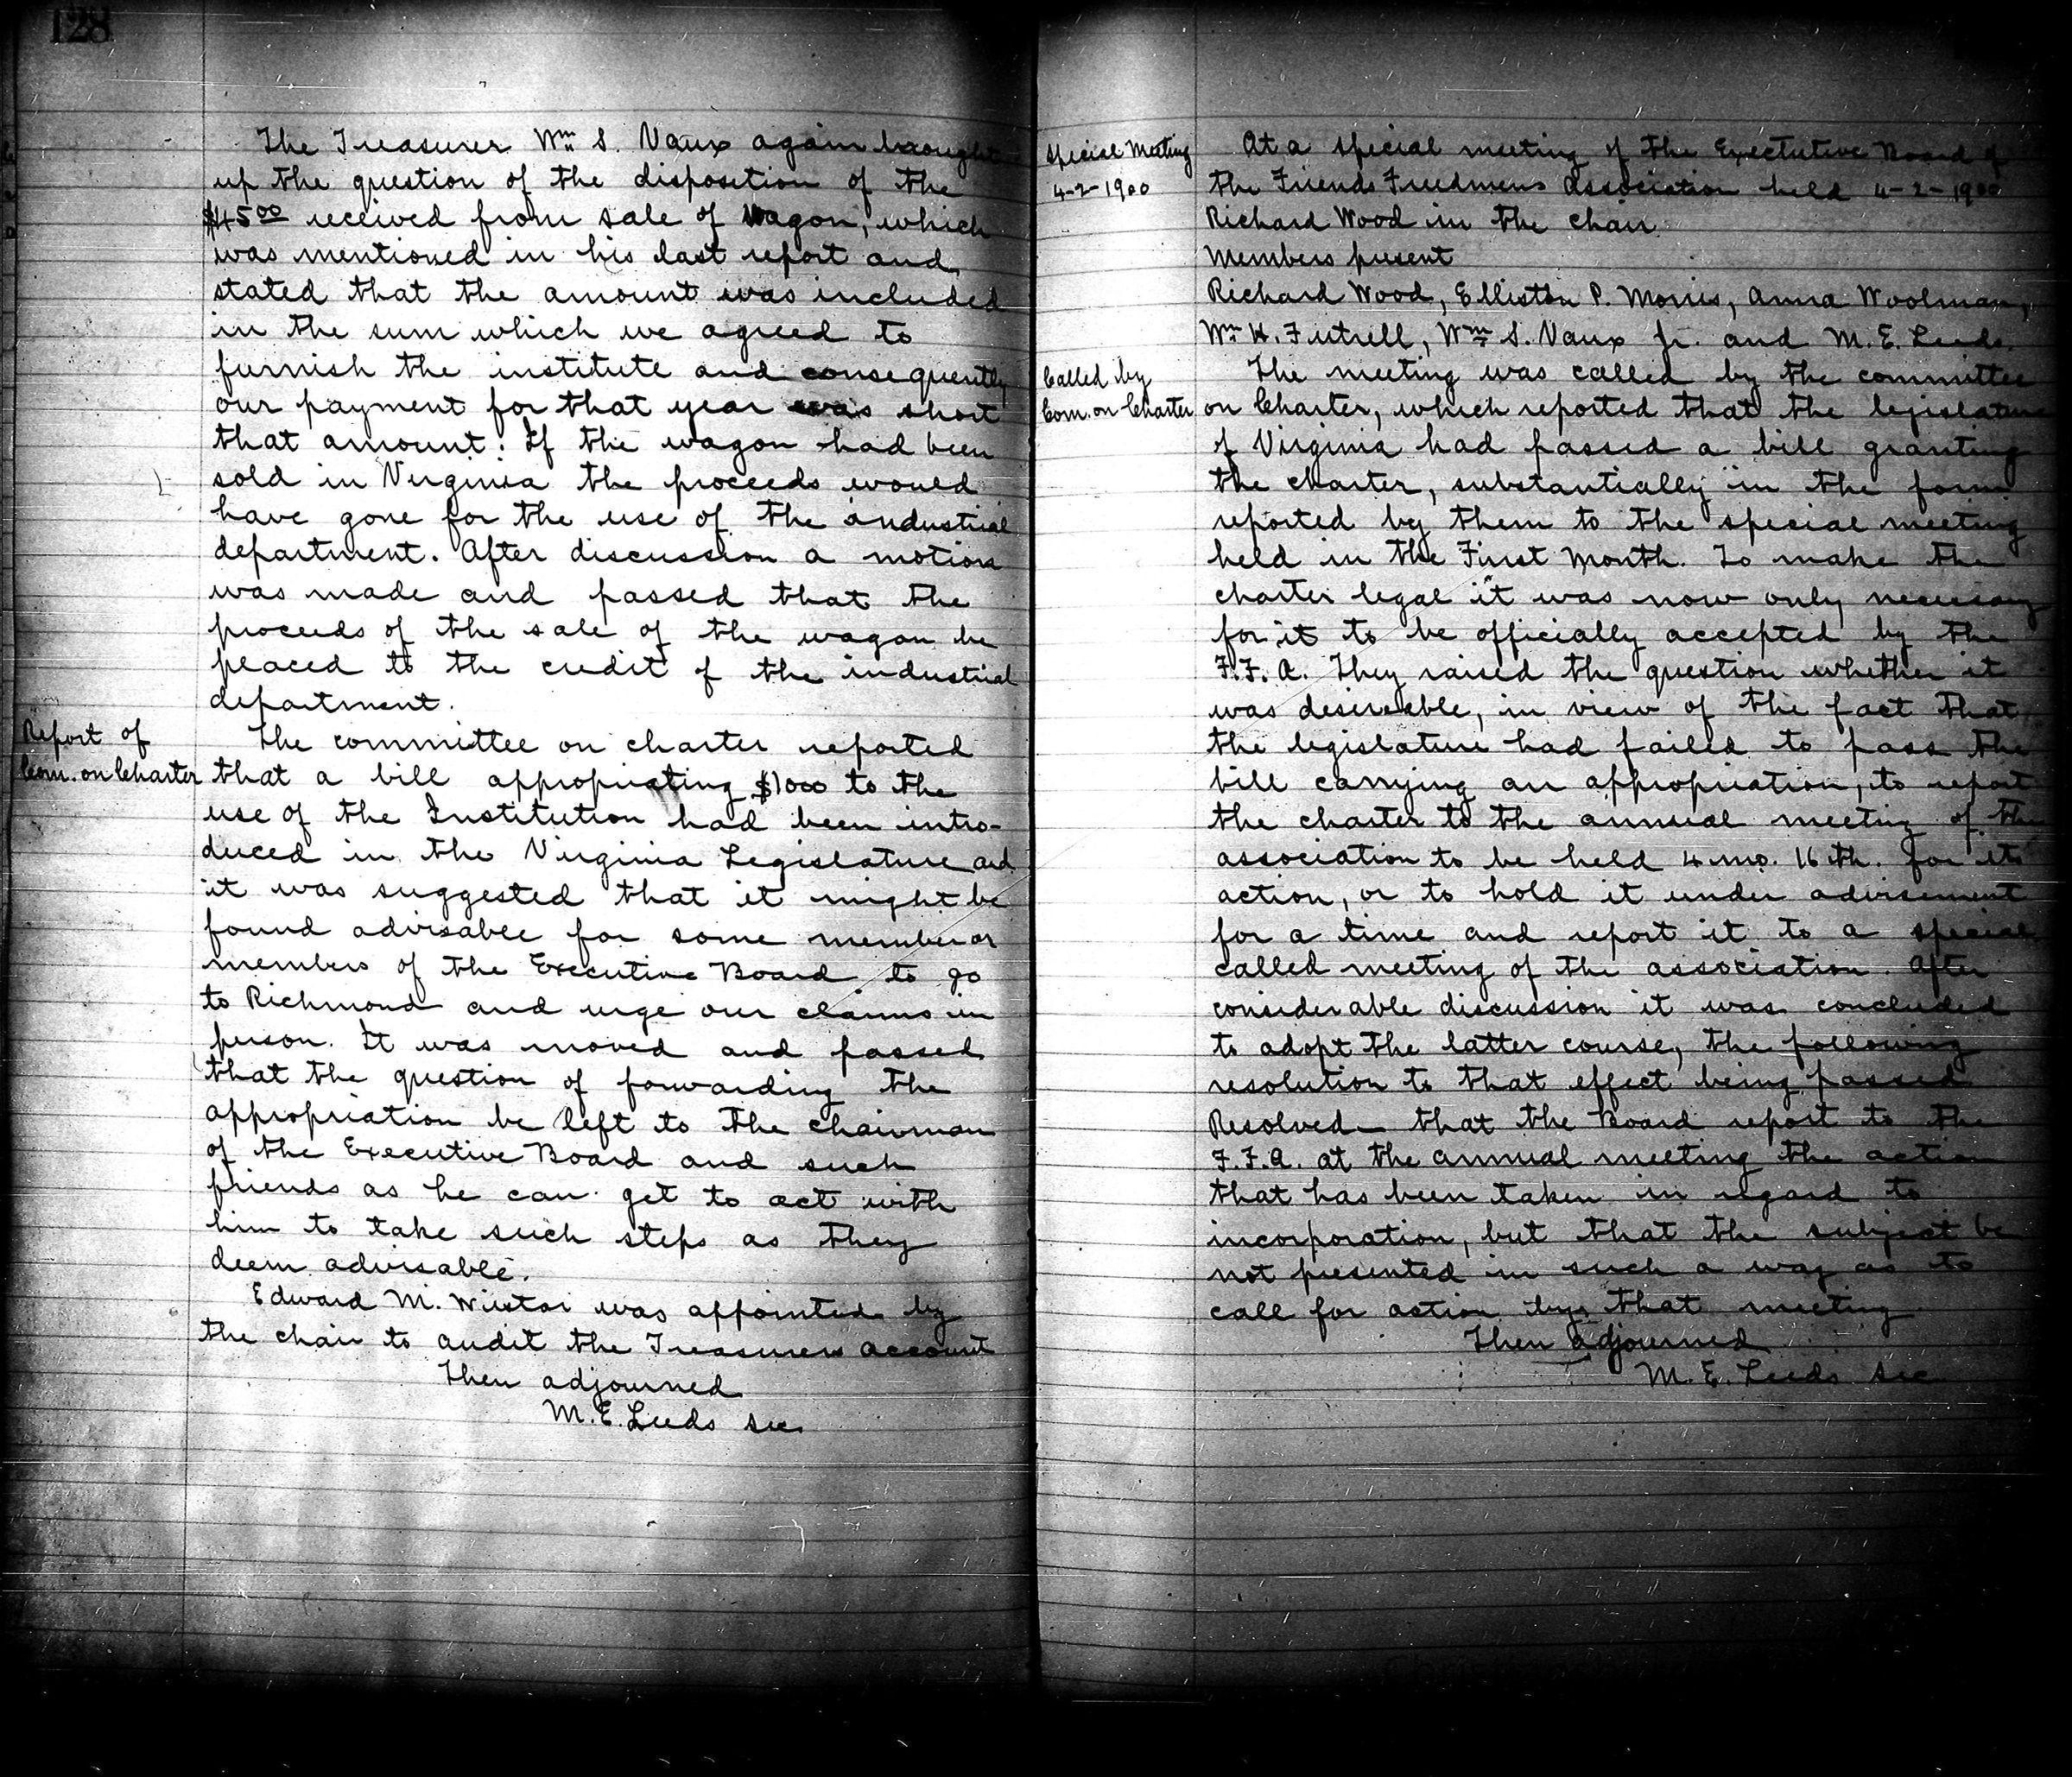 128
The Treasurer Wm S. Vaux again brought
up the question of the disposition of the
$45 00 received from sale of Wagon, which
was mentioned in his last report and
stated that the amount was included
in the sum which we agreed to
furnish the institute and consequently
our payment for that year was short
that amount. If the wagon had been
sold in Virginia the proceeds would
have gone for the use of the industrial
department. After discussion a motion
was made and passed that the
proceeds of the sale of the wagon be
placed to the credit of the industrial
department.
Report of
Com. on Charter
The committee on charter reported
that a bill appropriating $1000 to the
use of the Institution had been intro-
duced in the Virginia Legislature and
it was suggested that it might be
found advisable for some member or
members of the Executive Board to go
to Richmond and urge our claims in
person. It was moved and passed
that the question of forwarding the
appropriation be left to the chairman
of the Executive Board and such
friends as he can get to act with
him to take such steps as they
deem advisable.
Edward M. Wistar was appointed by
the chair to audit the Treasurers account
Then adjourned
M. E. Leeds sec.
Special Meeting
4-2-1900
At a special meeting of the Exectutive Board of
the Friends Freedmens Association held 4-2-1900
Richard Wood in the chair
Members present
Richard Wood, Elliston P. Morris, Anna Woolman,
Wm H. Futrell, Wm S. Vaux Jr. and M. E. Leeds.
Called by
Com. on Charter
The meeting was called by the committee
on Charter, which reported that the legislature
of Virginia had passed a bill granting
the charter, substantially in the form
reported by them to the special meeting
held in the First Month. To make the
charter legal it was now only necessary
for it to be officially accepted by the
F.F.A. They raised the question whether it
was desireable, in view of the fact that
the legislature had failed to pass the
bill carrying an appropriation, to report
the charter to the annual meeting of the
association to be held 4 mo. 16th. for its
action, or to hold it under advisement
for a time and report it to a special
called meeting of the association. After
considerable discussion it was concluded
to adopt the latter course, the following
resolution to that effect being passed
Resolved - that the Board report to the
F.F.A. at the annual meeting the action
that has been taken in regard to
incorporation, but that the subject be
not presented in such a way as to
call for action by that meeting
Then adjourned
M. E. Leeds sec.